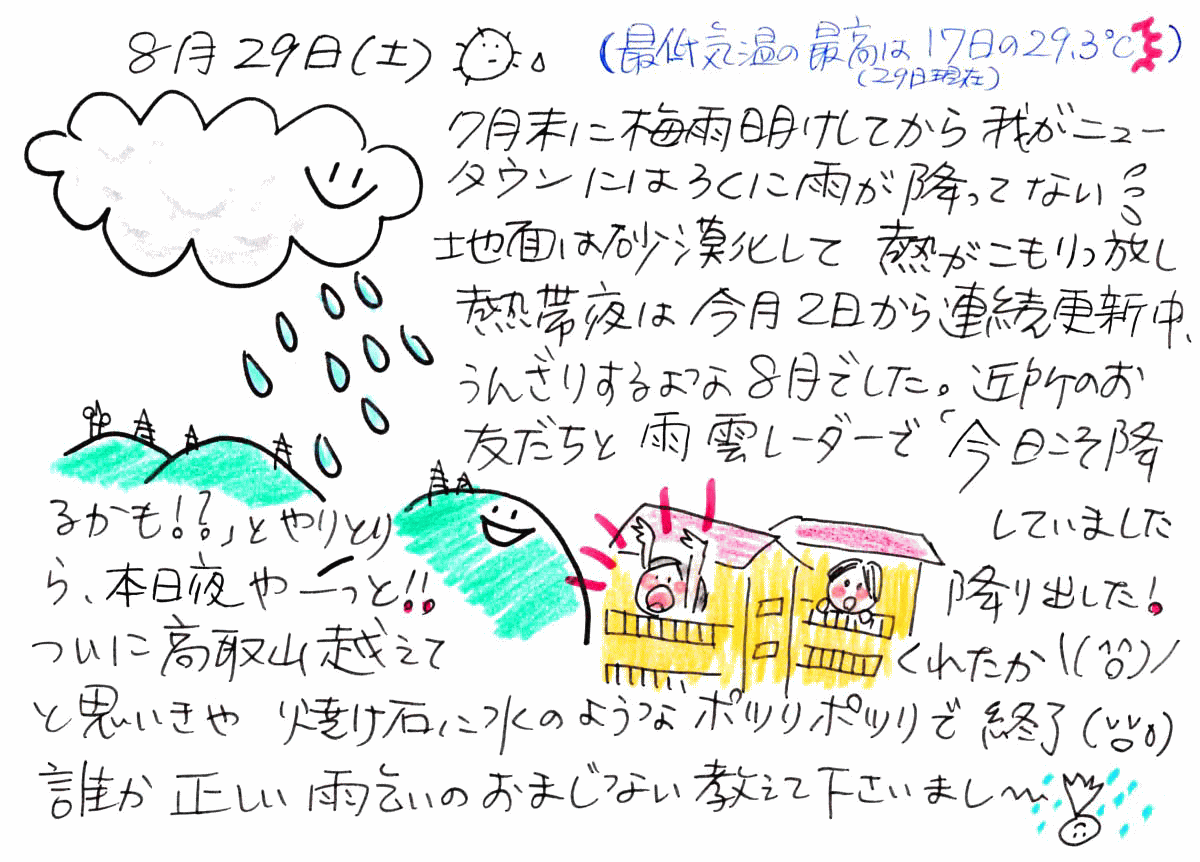 8月29日(土)
(最低気温の最高は17日の29.3℃)
(29日現在)
7月末に梅雨明けしてから我がニュー
タウンにはろくに雨が降ってない
地面は砂漠化して 熱がこもりっ放し
熱帯夜は今月2日から連続更新中、
うんざりするような8月でした。近所のお
友だちと雨雲レーダーで「今日こそ降
るかも!?」とやりとり していました
ら、本日夜やーっと!! 降り出した!
ついに高取山越えて くれたか\(^o^)/
と思いきや 焼け石に水のようなポツリポツリで終了(
誰か正しい雨乞いのおまじない教えて下さいまし〜